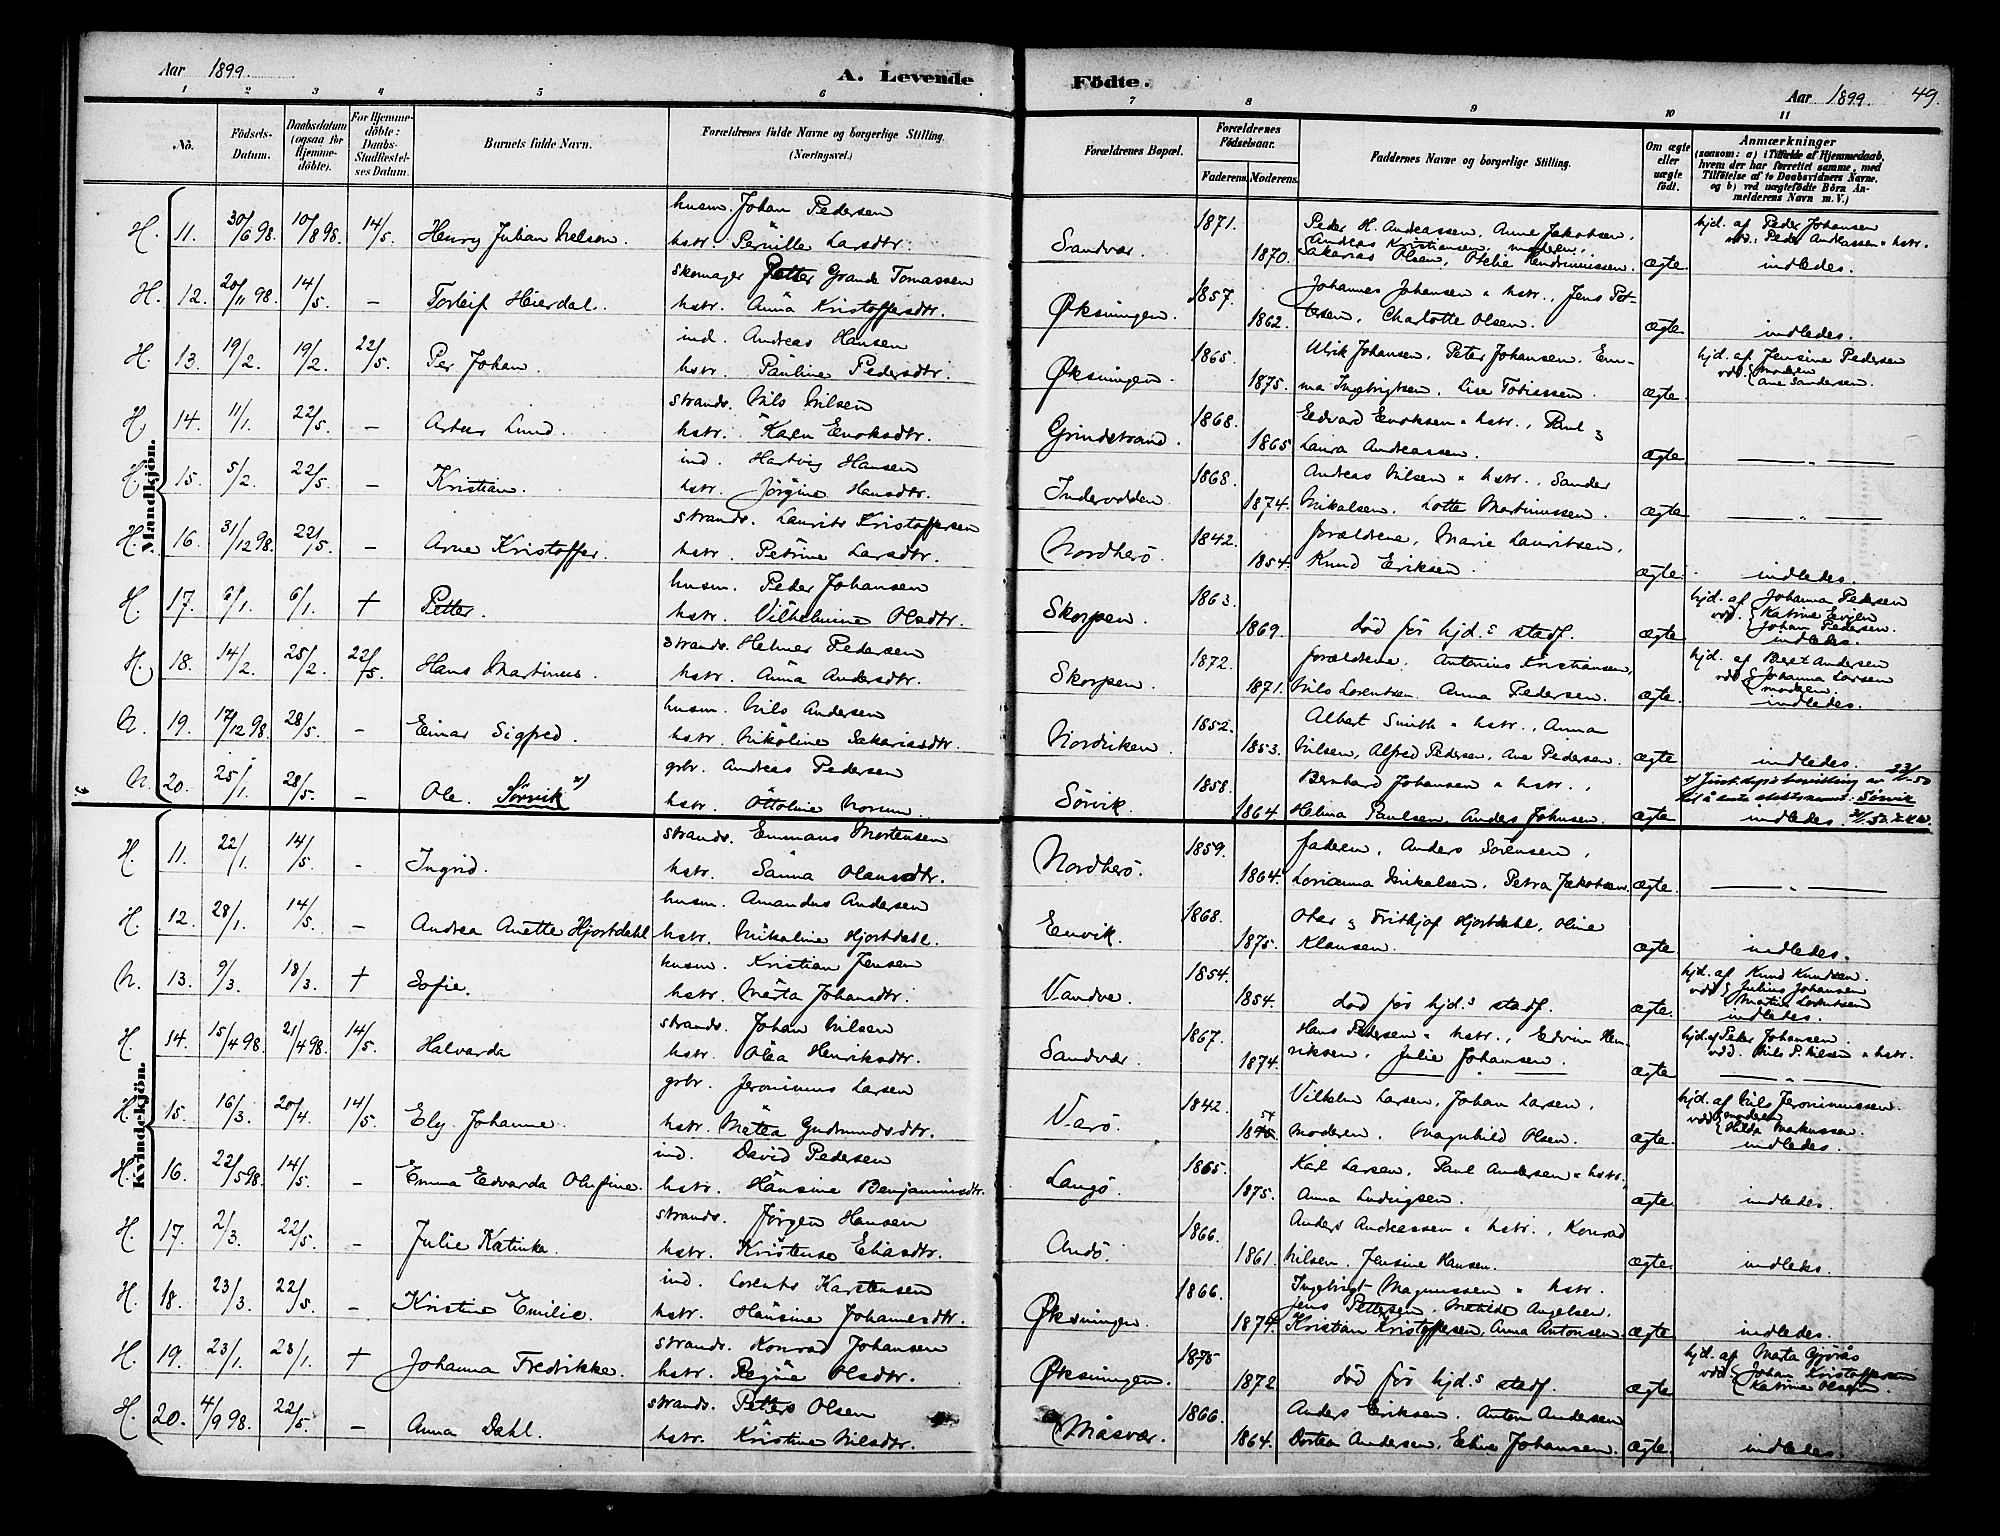 Aar 1899. A. Levende Födte. Aar 1899. 49.
1 2 3 4 5 6 7 8 9 10 11
No. Födsels-Datum. Daabsdatum (ogsaa for Hjemmedöbte). For Hjemmedöbte: Daabs-Stadfæstelses Datum. Barnets fulde Navn. Forældrenes fulde Navne og borgerlige Stilling. (Næringsvei.) Forældrenes Bopæl. Forældrenes Födselsaar. Faderens. Moderens. Faddernes Navne og borgerlige Stilling. Om ægte eller uægte födt. Anmærkninger (saasom: a) i Tilfælde af Hjemmedaab, hvem der har forrettet samme, med Tilföielse af to Daabsvidners Navne, og b) ved uægtefödte Börn Anmelderens Navn m. V.)
Mandkjön.
H. 11. 30/6 98. 10/8 98. 14/5. Henry Julian Nelson. husm. Johan Pedersen
hstr. Pernille Larsdtr. Sandvær. 1871. 1870. Peder H. Andreassen, Anne Jakobsen,
Andreas Kristiansen, moderen,
Sakarias Olsen, Otelie Hendrinussen. ægte hjd. af Peder Johansen
vdd.: Peder Andreassen " hstr.
indledes.
H. 12. 20/11 98. 14/5 – Torleif Heierdal. skomager Petter Grande Tomassen
hstr. Anna Kristoffersdtr. Øksningen. 1857. 1862. Johannes Johansen " hstr., Jens Pet-
tersen, Charlotte Olsen. ægte indledes.
H. 13. 19/2. 19/2. 22/5. Per Johan. ind. Andreas Hansen
hstr. Pauline Pedersdtr. Øksningen. 1865. 1875. Ulrik Johansen, Peter Johansen, Em-
ma Ingebrigtsen, Lise Tobiassen. ægte. hjd. af Jensine Pedersen
vdd. { Moderen
Ane Sandersen.
H. 14. 11/1. 22/5. – Artur Lund. strands. Nils Nilsen
hstr. Karen Enoksdtr. Grindstrand. 1868. 1865 Edvard Enoksen " hstr., Paul &
Laura Andreassen. ægte — " —
H. 15. 5/2. 22/5. – Kristian. ind. Hartvig Hansen
hstr. Jörgine Hansdtr. Indervodden. 1868. 1874. Andreas Nilsen " hstr., Sander
Mikalsen, Lotte Martinussen. ægte — " —
H. 16. 31/12 98. 22/5. – Arne Kristoffer. strands. Laurits Kristoffersen
hstr. Petrine Larsdtr. Nordherö. 1842. 1854. forældrene, Marie Lauritsen,
Knud Eriksen. ægte. indledes.
H. 17. 6/1. 6/1. † Petter. husm. Peder Johansen
hstr. Vilhelmine Olsdtr. Skorpen. 1863. 1869. död för hjd.s stadf. ægte hjd. af Johanna Pedersen
vdd. { Katrine
Johan Pedersen.
indledes.
H. 18. 14/2. 25/2. 22/5. Hans Martinus. strands. Helmer Pedersen
hstr. Anna Andersdtr. Skorpen. 1872. 1871. forældrene, Antonius Kristiansen,
Nils Lorentsen. Anna Pedersen. ægte. hjd. af Beret Andersen
vdd. { Johanna Larsen
moderen.
indledes.
N. 19. 17/12 98. 28/5. – Einar Sigfred. husm. Nils Andersen
hstr. Nikoline Sakariasdtr. Nordviken. 1852. 1853. Albert Smith " hstr., Anna
Nilsen, Alfred Pedersen, Ane Pedersen. ægte indledes.
N. 20. 25/1. 28/5. – Ole. Sørvik x) grbr. Andreas Pedersen
hstr. Ottoline Norum. Sörvik. 1858. 1864. Bernhard Johansen " hstr.,
Helma Paulsen, Anders Johnsen. ægte
indledes.
Kvindekjön.
H. 11. 22/1. 14/5. – Ingrid. strands. Emmans Mortensen
hstr. Sanna Olausdtr. Nordherö. 1859. 1864. faderen, Anders Sörensen,
Lorianna Mikalsen, Petra Jakobsen. ægte. — " —
H. 12. 28/1. 14/5. – Andrea Anette Hjortdahl husm. Amandus Andersen
hstr. Mikaline Hjortdahl. Envik. 1868. 1875. Otar & Fritjof Hjortdahl, Oline
Klausen. ægte indledes.
N. 13. 9/3. 18/3. † Sofie. husm. Kristian Jensen
hstr. Marta Johansdtr. Vandve. 1854. 1854. död för hjd.s stadf. ægte. hjd. af Knud Knudsen.
vdd. { Julius Johansen
Martin Lorentsen
indledes.
H. 14. 15/4 98. 21/4 98. 14/5. Halvarda strands. Johan Nilsen
hstr. Olea Henriksdtr. Sandvær. 1867. 1874. Hans Pedersen " hstr., Edvin Hen-
riksen, Julie Johansen. ægte hjd. af Peter Johansen.
vdd. Nils P. Nilsen " hstr.
— " —
H. 15. 16/3. 20/4. 14/5. Ely Johanne. grbr. Jeronimus Larsen
hstr. Metea Gudmundsdtr. Varö. 1842. 54 Vilhelm Larsen, Johan Larsen,
moderen, Magnhild Olsen. ægte. hjd. af Nils Jeronimussen.
vdd. { moderen
Hilda Markussen.
indledes.
H. 16. 22/5 98. 14/5. – Emma Edvarda Olufine. ind. David Pedersen
hstr. Hansine Benjaminsdtr. Langö. 1865. 1875. Karl Larsen, Paul Andersen " hstr.
Anna Ludvigsen. ægte indledes.
H. 17. 2/3. 22/5. – Julie Katinka. strands. Jörgen Hansen
hstr. Kristense Eliasdtr. Andö. 1866. 1861. Anders Andreassen " hstr., Konrad
Nilsen, Jensine Hansen. ægte. indledes.
H. 18. 23/3. 22/5. – Kristine Emilie. ind. Lorents Karstensen
hstr. Hansine Johannesdtr. Øksningen. 1866. 1874. Ingebrigt Magnussen " hstr.
Jens Pettersen, Matilde Angelsen,
Kristian Kristoffersen, Anna Antonsen. ægte indledes.
H. 19. 23/1. 23/1. † Johanna Fredrikke. strands. Konrad Johansen
hstr. Regine Olsdtr. Øksningen. 1875 1872 död för hjd.s stadf. ægte hjd. af Marta Gjörås
vdd. { Johan Kristoffersen
Katrine Olsen.
H. 20. 4/9 98. 22/5. – Anna Dahl. strands. Petter Olsen
hstr. Kristine Nilsdtr. Måsvær. 1866. 1864. Anders Eriksen, Anton Andersen
Dortea Andersen, Eline Johansen. ægte. indledes.